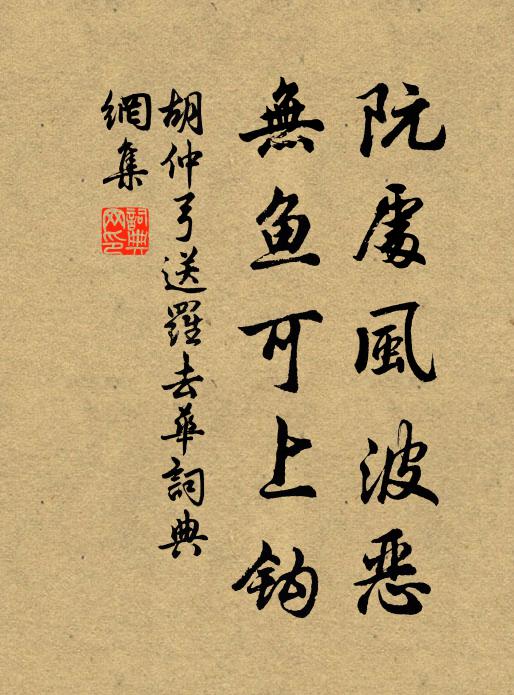 阮處風波恶
無鱼可上钩
胡仲弓送羅去華詞典
網集
詞典
网印